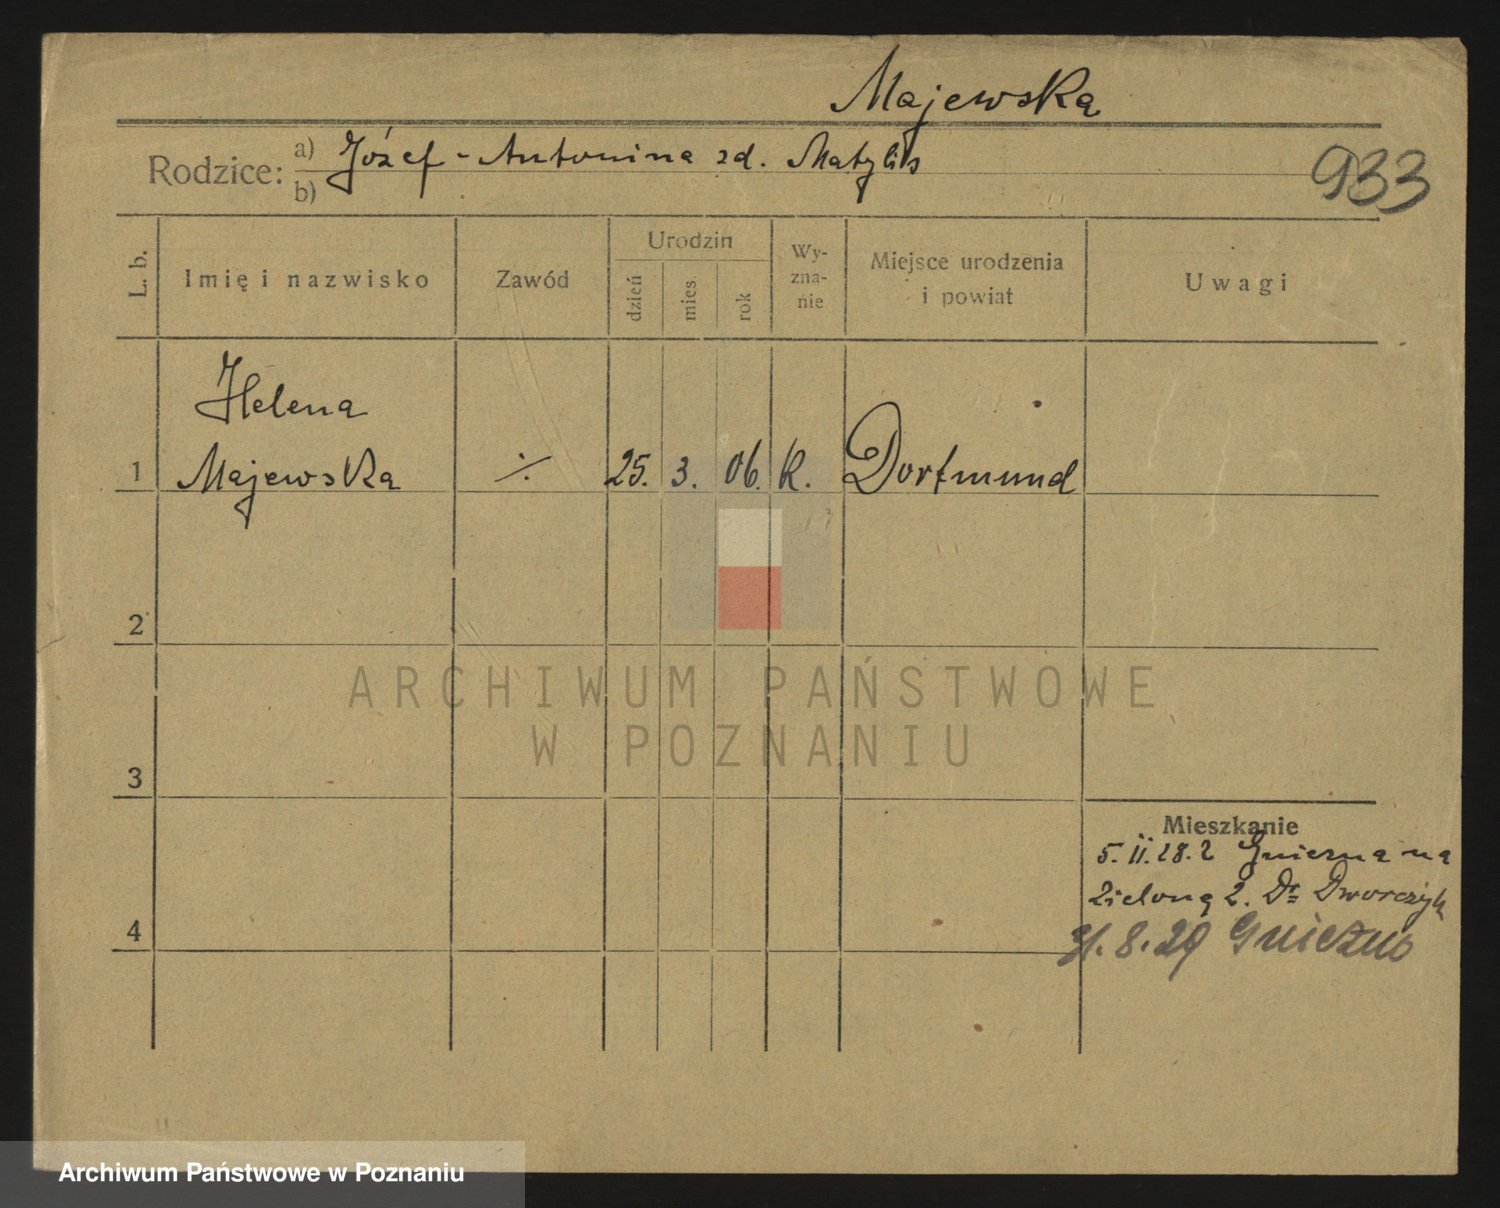 Majewska
Rodzice: a) Józef - Antonina zd. Matylis
b)
933
L. b. Imię i nazwisko Zawód Urodzin dzień mies. rok Wy-zna-nie Miejsce urodzenia i powiat Uwagi
Helena
1 Majewska ·/. 25. 3. 06. K. Dortmund
2
3
Mieszkanie
5.II.28. z Gniezna na
Zieloną 2. Dr Dworczyk
4
31.8.29 Gniezno
ARCHIWUM PAŃSTWOWE
W POZNANIU
Archiwum Państwowe w Poznaniu